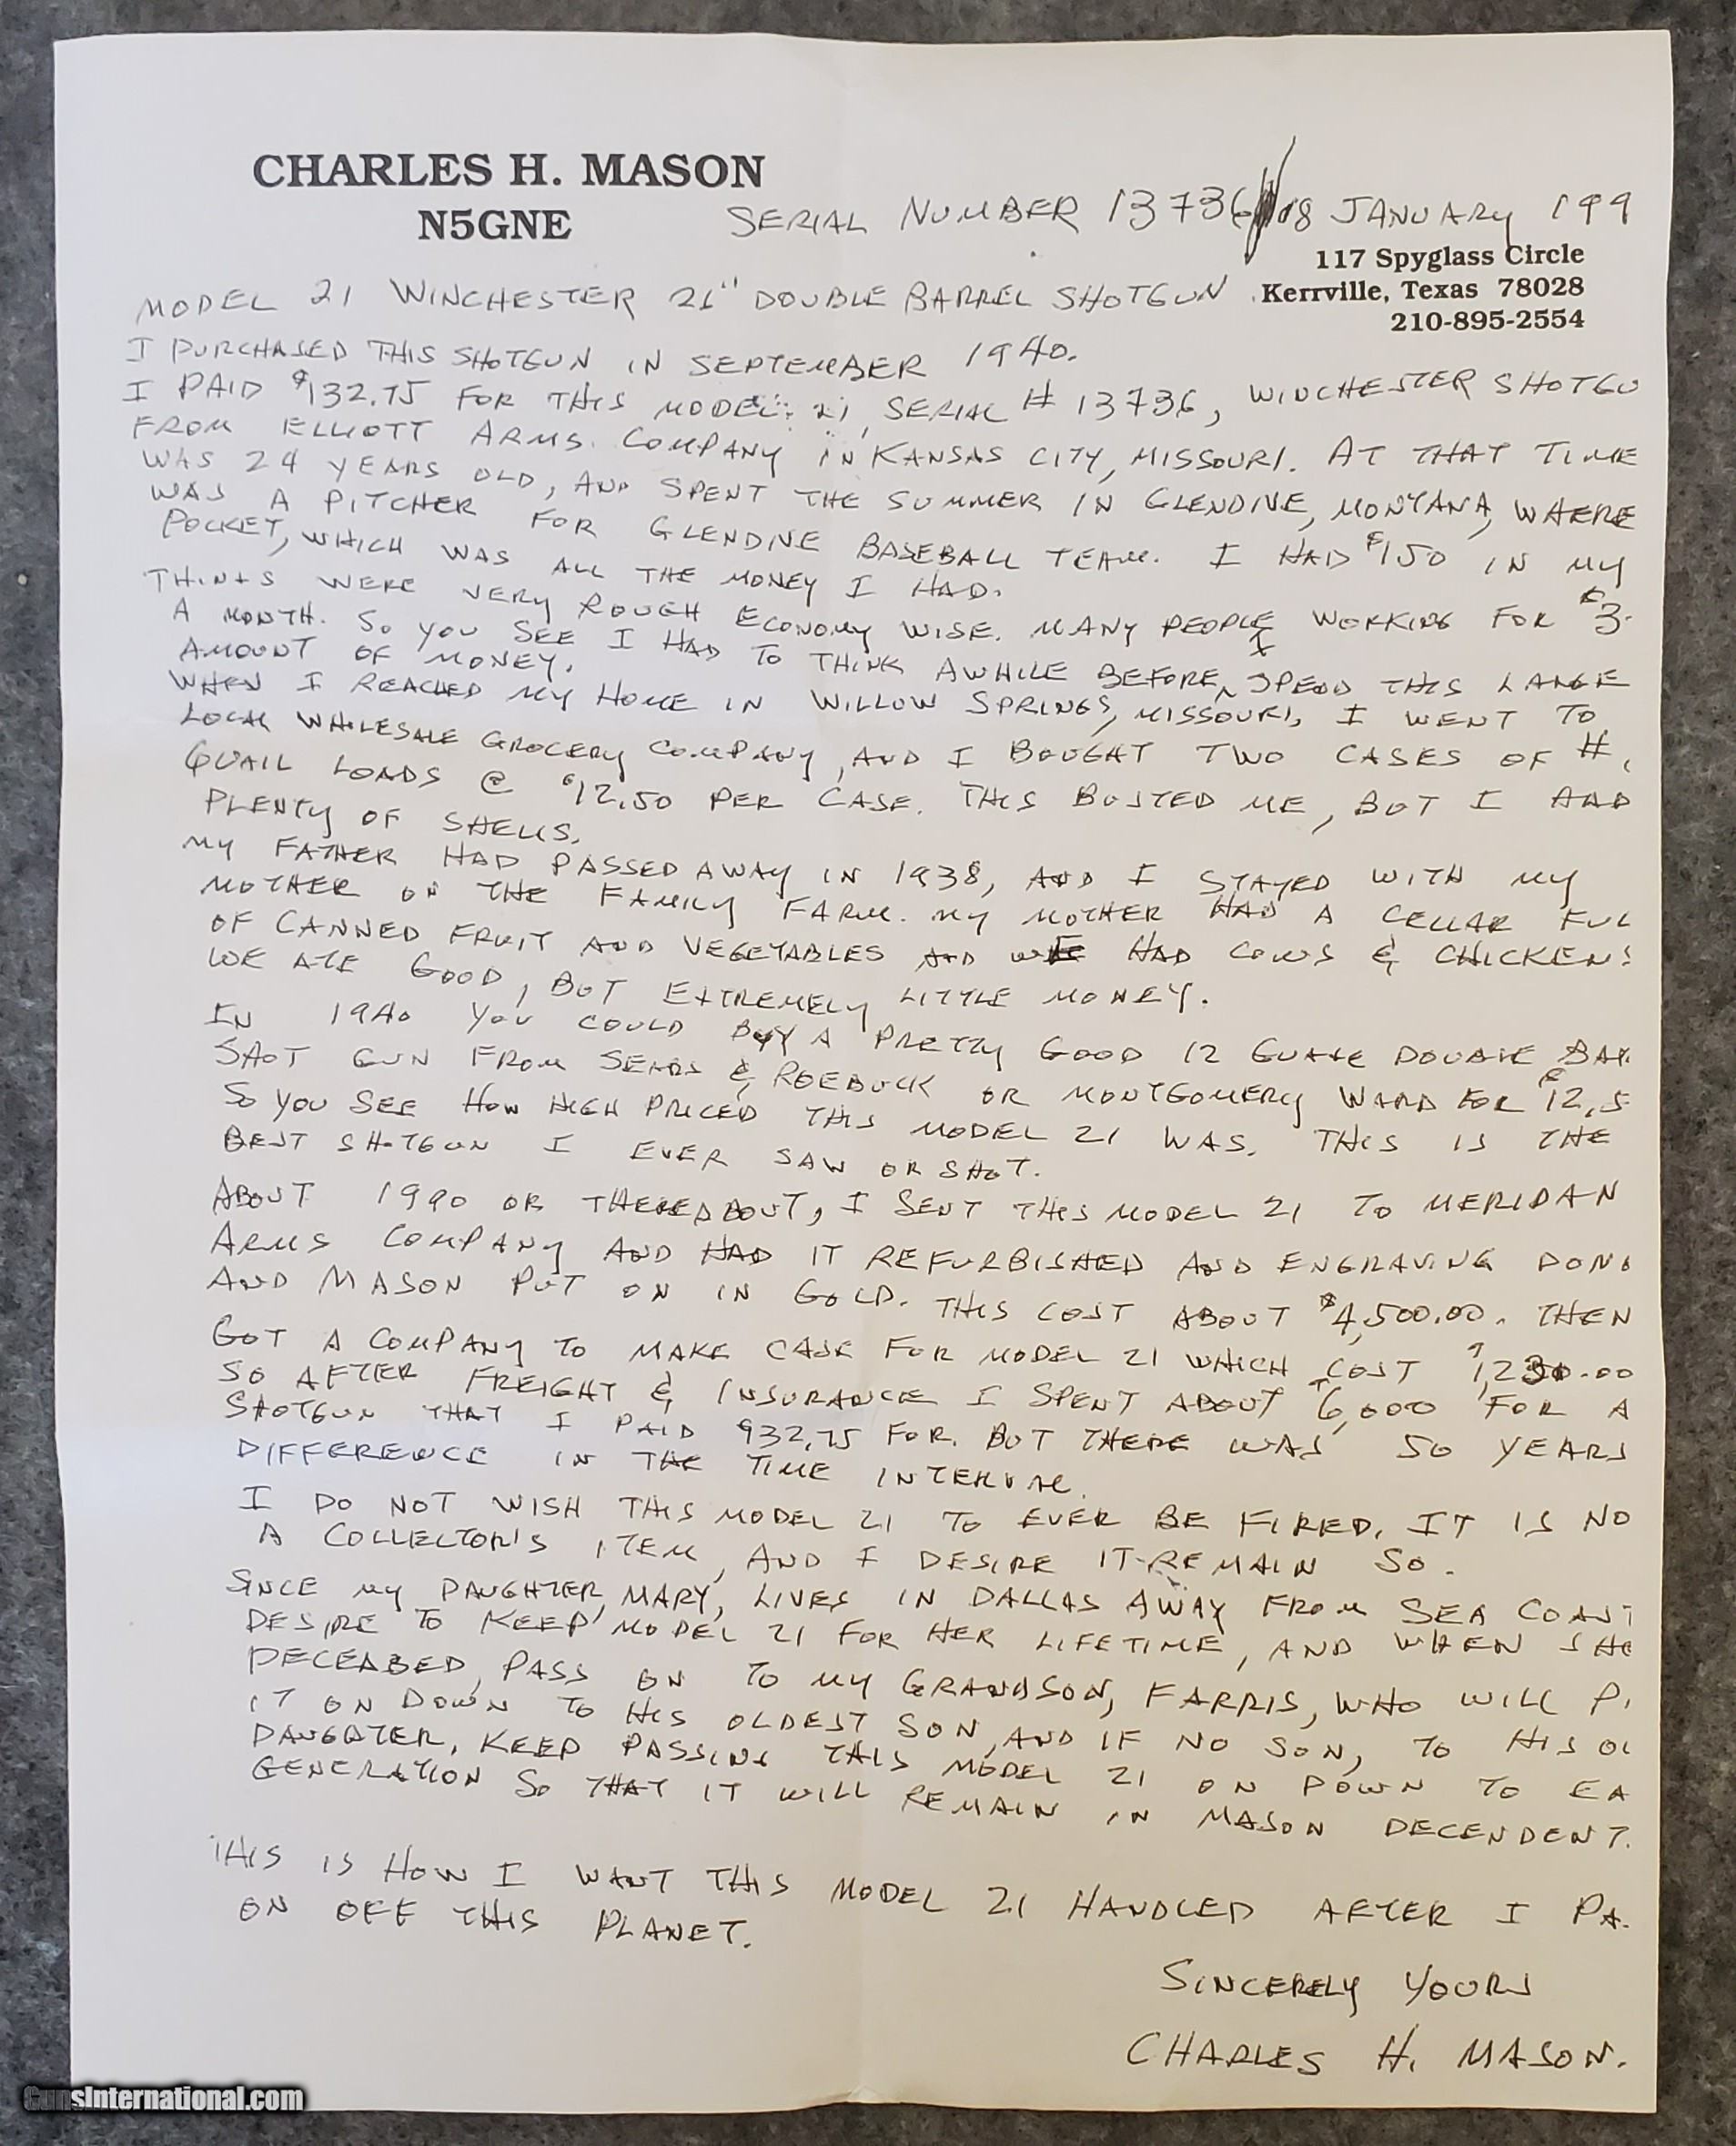 CHARLES H. MASON
N5GNE
SERIAL NUMBER 13736 18 JANUARY 199
117 Spyglass Circle
Kerrville, Texas 78028
210-895-2554
MODEL 21 WINCHESTER 26" DOUBLE BARREL SHOTGUN
I PURCHASED THIS SHOTGUN IN SEPTEMBER 1940.
I PAID $132.75 FOR THIS MODEL 21, SERIAL # 13736, WINCHESTER SHOTGU
FROM ELLIOTT ARMS COMPANY IN KANSAS CITY, MISSOURI. AT THAT TIME
WAS 24 YEARS OLD, AND SPENT THE SUMMER IN GLENDIVE, MONTANA, WHERE
WAS A PITCHER FOR GLENDIVE BASEBALL TEAM. I HAD $150 IN MY
POCKET, WHICH WAS ALL THE MONEY I HAD.
THINGS WERE VERY ROUGH ECONOMY WISE. MANY PEOPLE WORKING FOR $3
A MONTH. SO YOU SEE I HAD TO THINK AWHILE BEFORE I SPEND THIS LARGE
AMOUNT OF MONEY.
WHEN I REACHED MY HOME IN WILLOW SPRINGS, MISSOURI, I WENT TO
LOCAL WHOLESALE GROCERY COMPANY, AND I BOUGHT TWO CASES OF #
QUAIL LOADS @ $12.50 PER CASE. THIS BUSTED ME, BUT I HAD
PLENTY OF SHELLS.
MY FATHER HAD PASSED AWAY IN 1938, AND I STAYED WITH MY
MOTHER ON THE FAMILY FARM. MY MOTHER HAD A CELLAR FUL
OF CANNED FRUIT AND VEGETABLES AND WE HAD COWS & CHICKENS
WE ATE GOOD, BUT EXTREMELY LITTLE MONEY.
IN 1940 YOU COULD BUY A PRETTY GOOD 12 GUAGE DOUBLE BAR
SHOT GUN FROM SEARS & ROEBUCK OR MONTGOMERY WARD FOR $12.5
SO YOU SEE HOW HIGH PRICED THIS MODEL 21 WAS. THIS IS THE
BEST SHOTGUN I EVER SAW OR SHOT.
ABOUT 1990 OR THEREABOUT, I SENT THIS MODEL 21 TO MERIDAN
ARMS COMPANY AND HAD IT REFURBISHED AND ENGRAVING DONE
AND MASON PUT ON IN GOLD. THIS COST ABOUT $4,500.00. THEN
GOT A COMPANY TO MAKE CASE FOR MODEL 21 WHICH COST $1,230.00
SO AFTER FREIGHT & INSURANCE I SPENT ABOUT $6,000 FOR A
SHOTGUN THAT I PAID 932.75 FOR. BUT THERE WAS 50 YEARS
DIFFERENCE IN THE TIME INTERVAL.
I DO NOT WISH THIS MODEL 21 TO EVER BE FIRED. IT IS NO
A COLLECTOR'S ITEM, AND I DESIRE IT REMAIN SO.
SINCE MY DAUGHTER, MARY, LIVES IN DALLAS AWAY FROM SEA COAST
DESIRE TO KEEP MODEL 21 FOR HER LIFETIME, AND WHEN SHE
DECEASED, PASS ON TO MY GRANDSON, FARRIS, WHO WILL P
IT ON DOWN TO HIS OLDEST SON, AND IF NO SON, TO HIS OL
DAUGHTER. KEEP PASSING THIS MODEL 21 ON DOWN TO EA
GENERATION SO THAT IT WILL REMAIN IN MASON DECENDENT
THIS IS HOW I WANT THIS MODEL 21 HANDLED AFTER I PA
ON OFF THIS PLANET.
SINCERELY YOURS
CHARLES H. MASON.
GunsInternational.com